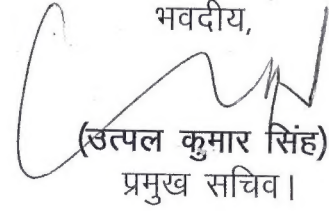 भवदीय,
(उत्पल कुमार सिंह)
प्रमुख सचिव।